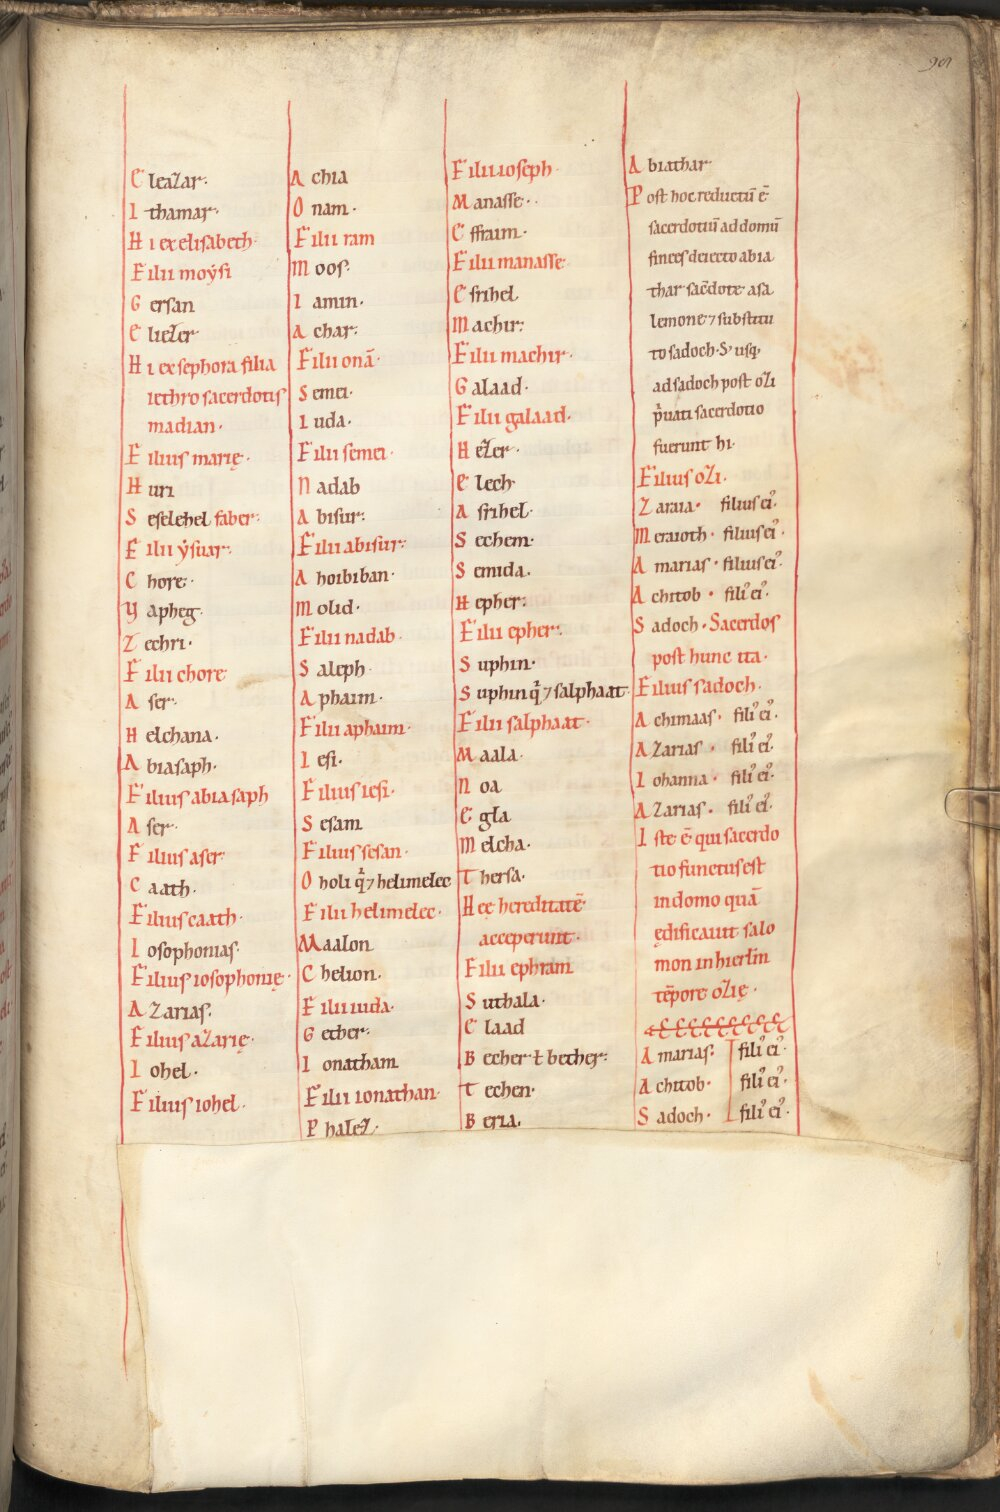 Eleazar·
Ithamar·
Hi ex elisabeth·
Filii moẏsi
Gersan
Eliezer
Hi ex sephora filia
iethro sacerdotis
madian·
Filius marię·
Huri
Seselehel faber·
Filii ẏsuar·
Chore·
Yapheg·
Zechri·
Filii chore
Aser·
Helchana·
Abiasaph·
Filius abiasaph
Aser·
Filius aser·
Caath·
Filius caath·
Iosophonias·
Filius iosophonię·
Azarias·
Filius azarię·
Iohel·
Filius iohel·
Achia
Onam·
Filii ram
Moos·
Iamin·
Achar·
Filii onā·
Semei·
Iuda·
Filii semei·
Nadab
Abisur·
Filii abisur·
Ahoibiban·
Molid·
Filii nadab·
Saleph·
Aphaim·
Filii aphaim·
Iesi·
Filius iesi·
Sesam
Filius sesan·
Oholi q̄ ⁊ helimelec
Filii helimelec·
Maalon
Chelion·
Filii iuda·
Gether·
Ionatham
Filii ionathan·
Phalez·
Filii ioseph·
Manasse·
Effraim·
Filii manasse
Esrihel
Machir·
Filii machir·
Galaad·
Filii galaad·
Hezer·
Elech
Asrihel·
Sechem·
Semida·
Hepher·
Filii epher·
Suphin·
Suphin q̄ ⁊ salphaat·
Filii salphaat·
Maala·
Noa
Egla
Melcha·
Thersa·
Hec hereditatē
acceperunt·
Filii ephram
Suthala·
Elaad
Becher ł becher·
Techen·
Beria·
Abiathar
Post hoc reductū ē
sacerdotiū ad domū
finees deiecto abia
thar sac̄dote a sa
lemone ⁊ substitu
to sadoch· S; usq;
ad sadoch post ozi
p̄uati sacerdotio
fuerunt hi·
Filius ozi·
Zaraia· filius ei᾽
Meraioth· filius ei᾽·
Amarias· filius ei᾽·
Achitob· fili᾽ ei᾽·
Sadoch· Sacerdos
post hunc ita·
Filius sadoch·
Achimaas· fili᾽ ei᾽·
Azarias· fili᾽ ei᾽·
Iohanna· fili᾽ ei᾽·
Azarias· fili᾽ ei᾽·
Iste ē qui sacerdo
tio functus est
in domo quā
ędificauit salo
mon in hierłm
tēpore ozię·
Amarias· fili᾽ ei᾽·
Achitob· fili᾽ ei᾽·
Sadoch· fili᾽ ei᾽·